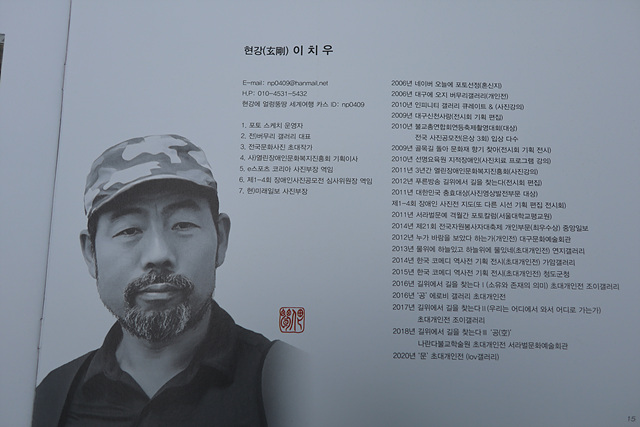 현강(玄剛) 이 치 우
E-mail: np0409@hanmail.net
H.P: 010-4531-5432
현강에 얼렁뚱땅 세계여행 카스 ID: np0409
1. 포토 스케치 운영자
2. 전)버무리 갤러리 대표
3. 전국문화사진 초대작가
4. 사)열린장애인문화복지진흥회 기획이사
5. e스포츠 코리아 사진부장 역임
6. 제1-4회 장애인사진공모전 심사위원장 역임
7. 현)미래일보 사진부장
2006년 네이버 오늘에 포토선정(혼신지)
2006년 대구에 오지 버무리갤러리(개인전)
2010년 인피니티 갤러리 큐레이트 & (사진강의)
2009년 대구신천사랑(전시회 기획 편집)
2010년 불교총연합회연등축제촬영대회(대상)
전국 사진공모전(은상 3회) 입상 다수
2009년 골목길 돌아 문화재 향기 찾아(전시회 기획 전시)
2010년 선명요육원 지적장애인(사진치료 프로그램 강의)
2011년 3년간 열린장애인문화복지진흥회(사진강의)
2012년 푸른방송 길위에서 길을 찾는다(전시회 편집)
2011년 대한민국 충효대상(사진영상발전부문 대상)
제1-4회 장애인 사진전 지도(또 다른 시선 기획 편집 전시회)
2011년 서라벌문예 격월간 포토칼럼(서울대학교평교원)
2014년 제21회 전국자원봉사자대축제 개인부문(최우수상) 중앙일보
2012년 누가 바람을 보았다 하는가(개인전) 대구문화예술회관
2013년 물위에 하늘있고 하늘위에 물있네(초대개인전) 연지갤러리
2014년 한국 코메디 역사전 기획 전시(초대개인전) 가얌갤러리
2015년 한국 코메디 역사전 기획 전시(초대개인전) 청도군청
2016년 길위에서 길을 찾는다 I (소유와 존재의 의미) 초대개인전 조이갤러리
2016년 '공' 에로비 갤러리 초대개인전
2017년 길위에서 길을 찾는다 II (우리는 어디에서 와서 어디로 가는가)
초대개인전 조이갤러리
2018년 길위에서 길을 찾는다 III '공(空)'
나란다불교학술원 초대개인전 서라벌문화예술회관
2020년 '문' 초대개인전 (lov갤러리)
15